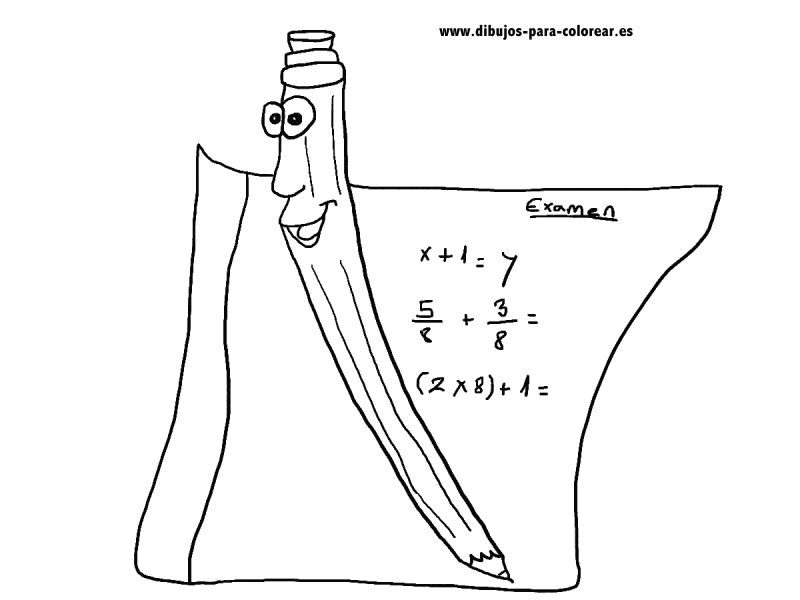 www.dibujos-para-colorear.es
Examen
x + 1 = y
5/8 + 3/8 =
(2 x 8) + 1 =